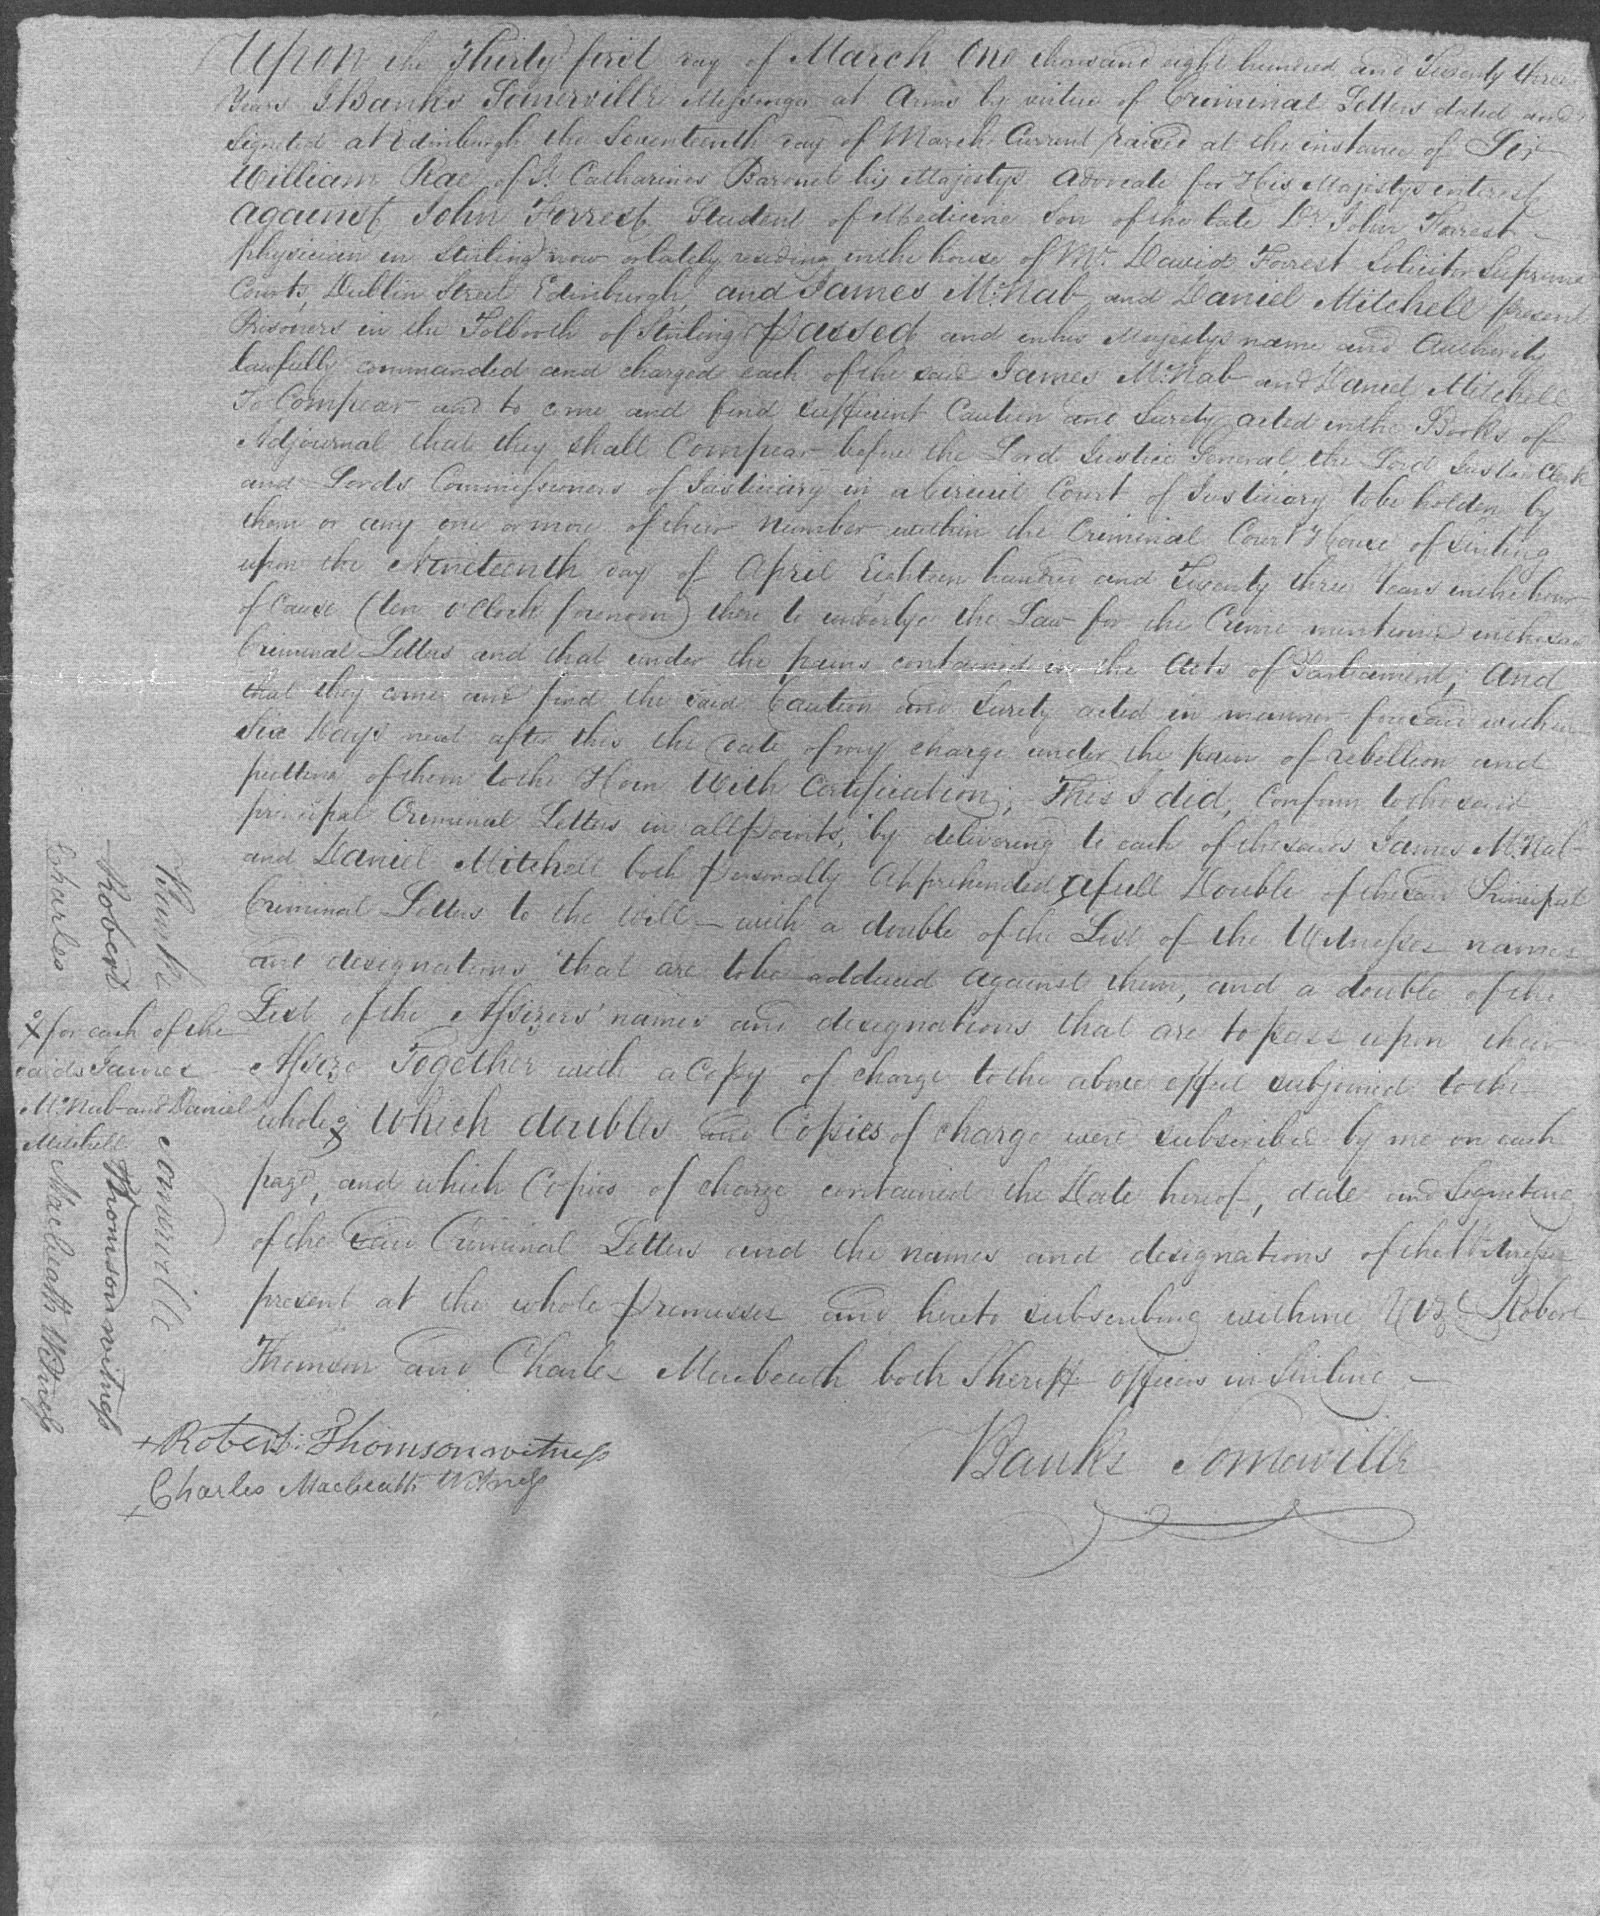 Upon the Thirty first day of March One thousand eight hundred and Twenty three
Years I Banks Somerville Messenger at Arms by virtue of Criminal Letters dated and
Signeted at Edinburgh the Seventeenth day of March Current raised at the instance of Sir
William Rae of St. Catharines Baronet his Majestys Advocate for His Majestys interest
against John Forrest Student of Medicine Son of the late Dr. John Forrest
physician in Stirling now or lately residing in the house of Mr. David Forrest Solicitor Supreme
Courts, Dublin Street Edinburgh, and James McNab and Daniel Mitchell present
Prisoners in the Tolbooth of Stirling Passed and in his Majestys name and Authority
lawfully commanded and charged each of the said James McNab and Daniel Mitchell
To Compear and to come and find sufficient Caution and Surety acted in the Books of
Adjournal that they shall Compear before the Lord Justice General the Lord Justice Clerk
and Lords Commissioners of Justiciary in a Circuit Court of Justiciary to be holden by
them or any one or more of their number within the Criminal Court House of Stirling
upon the Nineteenth day of April Eighteen hundred and Twenty three Years in the hour
of Cause (ten o'Clock forenoon) there to underlye the Law for the Crime mentioned in the said
Criminal Letters and that under the pains contained in the Acts of Parliament; And
that they come and find the said Caution and Surety acted in manner foresaid within
Six Days next after this the date of my charge under the pain of rebellion and
putting of them to the Horn With Certification; This I did, conform to the said
principal Criminal Letters in all points, by delivering to each of the saids James McNab
and Daniel Mitchell both personally Apprehended, a full Double of the said Principal
Criminal Letters to the Will - with a double of the List of the Witnesses names
and designations that are to be adduced against them, and a double of the
List of the Assizers names and designations that are to pass upon their
Assize Together with a Copy of charge to the above effect subjoined to the
whole; x Which doubles and Copies of charge were subscribed by me on each
page, and which Copies of charge contained the Date hereof, date and Signeting
of the said Criminal Letters and the names and designations of the Witnesses
present at the whole Premisses and hereto subscribing with me Vizt Robert
Thomson and Charles Macbeath both Sheriff officers in Stirling -
Banks Somerville
Robert Thomson witness
Charles Macbeath Witness
x for each of the
saids James
McNab and Daniel
Mitchell
Banks Somerville
Robert Thomson witness
Charles Macbeath Witness